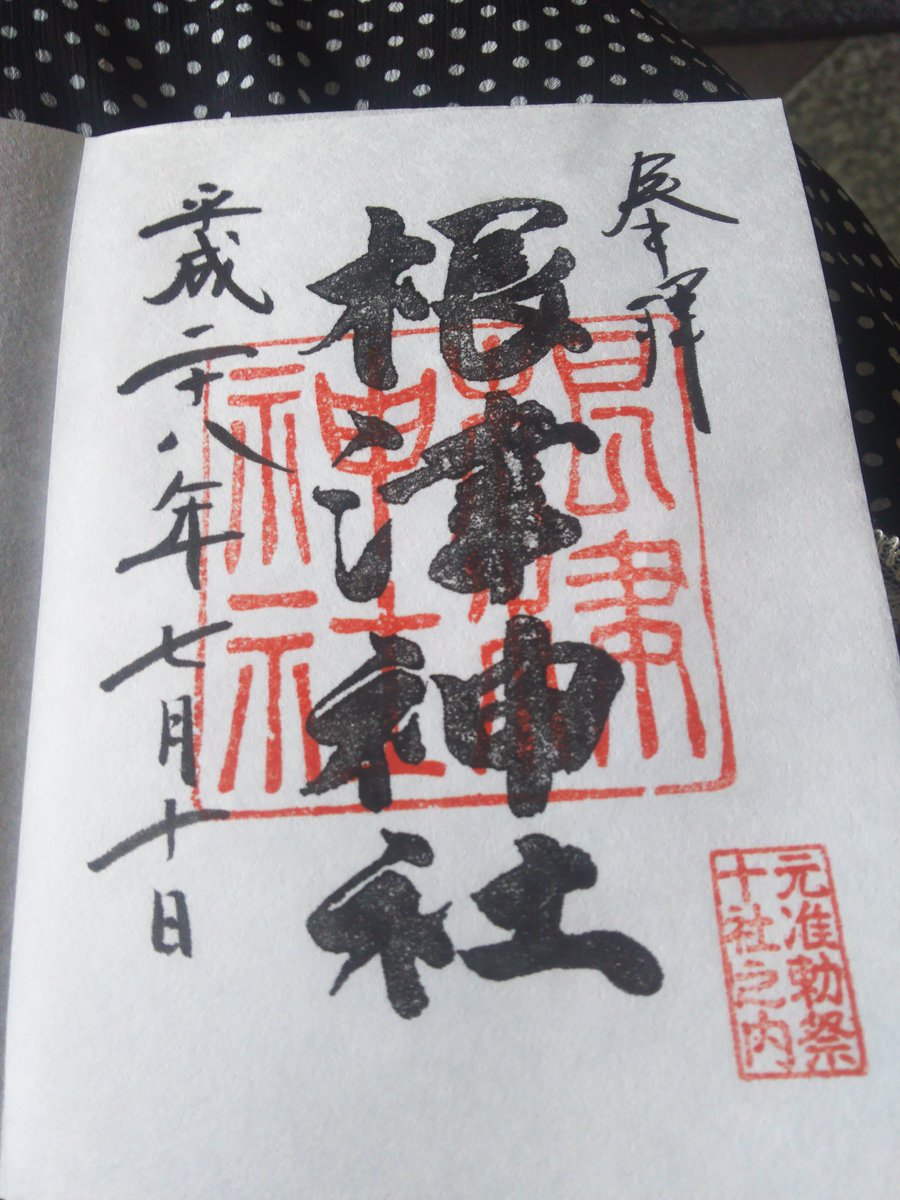 奉拝
根津神社
根津神社
平成二十八年七月十日
元准勅祭
十社之内